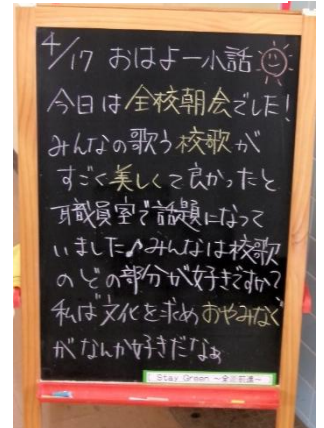 4/17 おはよー小話
今日は全校朝会でした!
みんなの歌う校歌が
すごく美しくて良かったと
職員室で話題になって
いました♪みんなは校歌
のどの部分が好きですか?
私は文化を求めおやみなく
がなんか好きだなぁ
Stay Green ~全力前進~